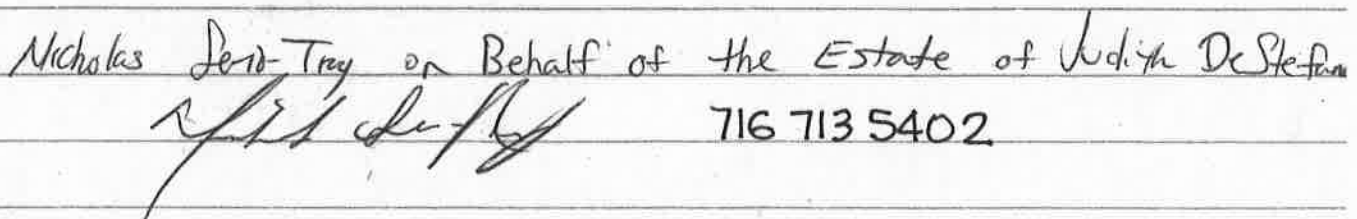 Nicholas on Behalf of the Estate of Judith DeStefan
716 713 5402